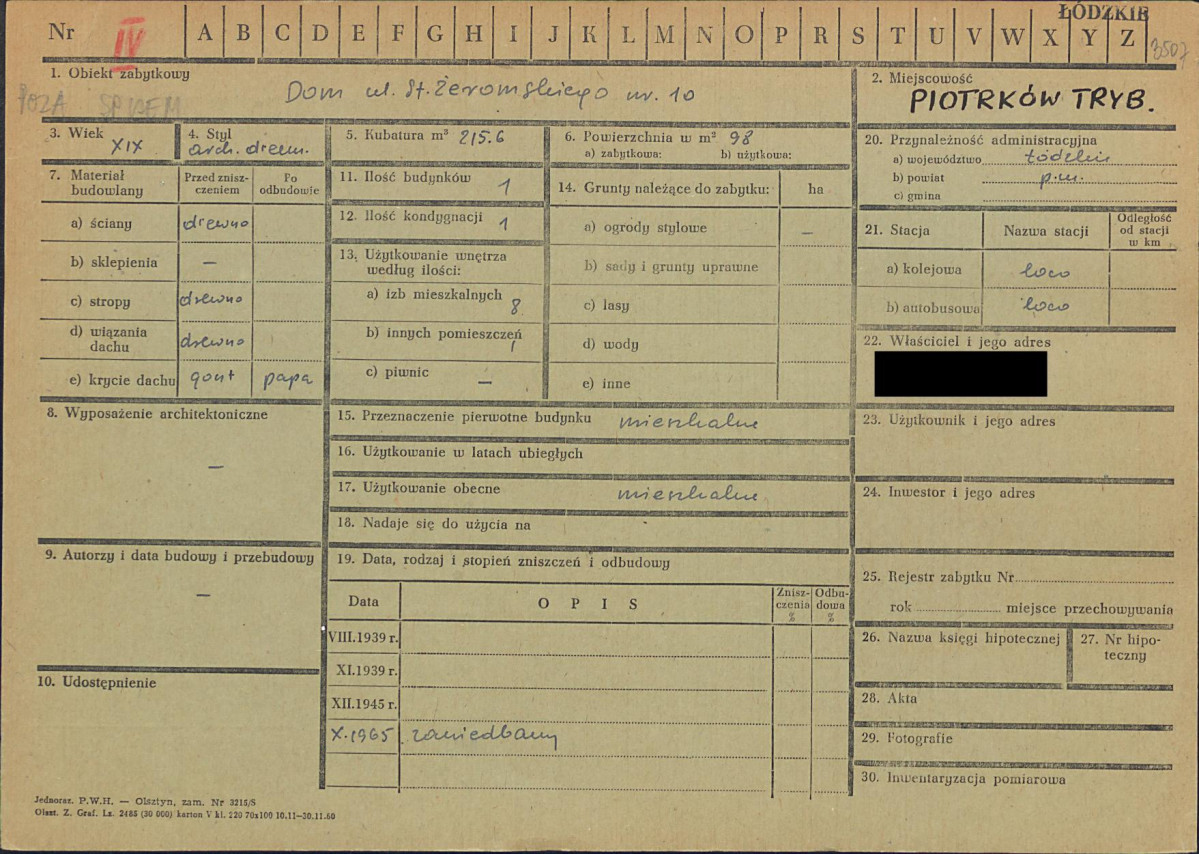 Nr IV A B C D E F G H I J K L M N O P R S T U V W X Y Z
ŁÓDZKIE
3507
1. Obiekt zabytkowy
POZA SPISEM
Dom ul. St. Żeromskiego nr. 10
2. Miejscowość
PIOTRKÓW TRYB.
3. Wiek
XIX
4. Styl
arch. drewn.
5. Kubatura m³ 215.6
6. Powierzchnia w m² 98
a) zabytkowa: b) użytkowa:
7. Materiał budowlany
Przed zniszczeniem
Po odbudowie
a) ściany drewno
b) sklepienia —
c) stropy drewno
d) wiązania dachu drewno
e) krycie dachu gont papa
8. Wyposażenie architektoniczne
—
9. Autorzy i data budowy i przebudowy
—
10. Udostępnienie
11. Ilość budynków 1
12. Ilość kondygnacji 1
13. Użytkowanie wnętrza według ilości:
a) izb mieszkalnych 8
b) innych pomieszczeń 1
c) piwnic —
14. Grunty należące do zabytku: ha
a) ogrody stylowe —
b) sady i grunty uprawne
c) lasy
d) wody
e) inne
15. Przeznaczenie pierwotne budynku mieszkalne
16. Użytkowanie w latach ubiegłych
17. Użytkowanie obecne mieszkalne
18. Nadaje się do użycia na
19. Data, rodzaj i stopień zniszczeń i odbudowy
Data OPIS Zniszczenia % Odbudowa %
VIII.1939 r.
XI.1939 r.
XII.1945 r.
X.1965 zaniedbany
20. Przynależność administracyjna
a) województwo łódzkie
b) powiat p.m.
c) gmina
21. Stacja Nazwa stacji Odległość od stacji w km
a) kolejowa loco
b) autobusowa loco
22. Właściciel i jego adres
23. Użytkownik i jego adres
24. Inwestor i jego adres
25. Rejestr zabytku Nr
rok miejsce przechowywania
26. Nazwa księgi hipotecznej
27. Nr hipoteczny
28. Akta
29. Fotografie
30. Inwentaryzacja pomiarowa
Jednoraz. P.W.H. — Olsztyn, zam. Nr 3215/S
Olszt. Z. Graf. Lz. 2485 (30 000) karton V kl. 220 70x100 10.11—30.11.60